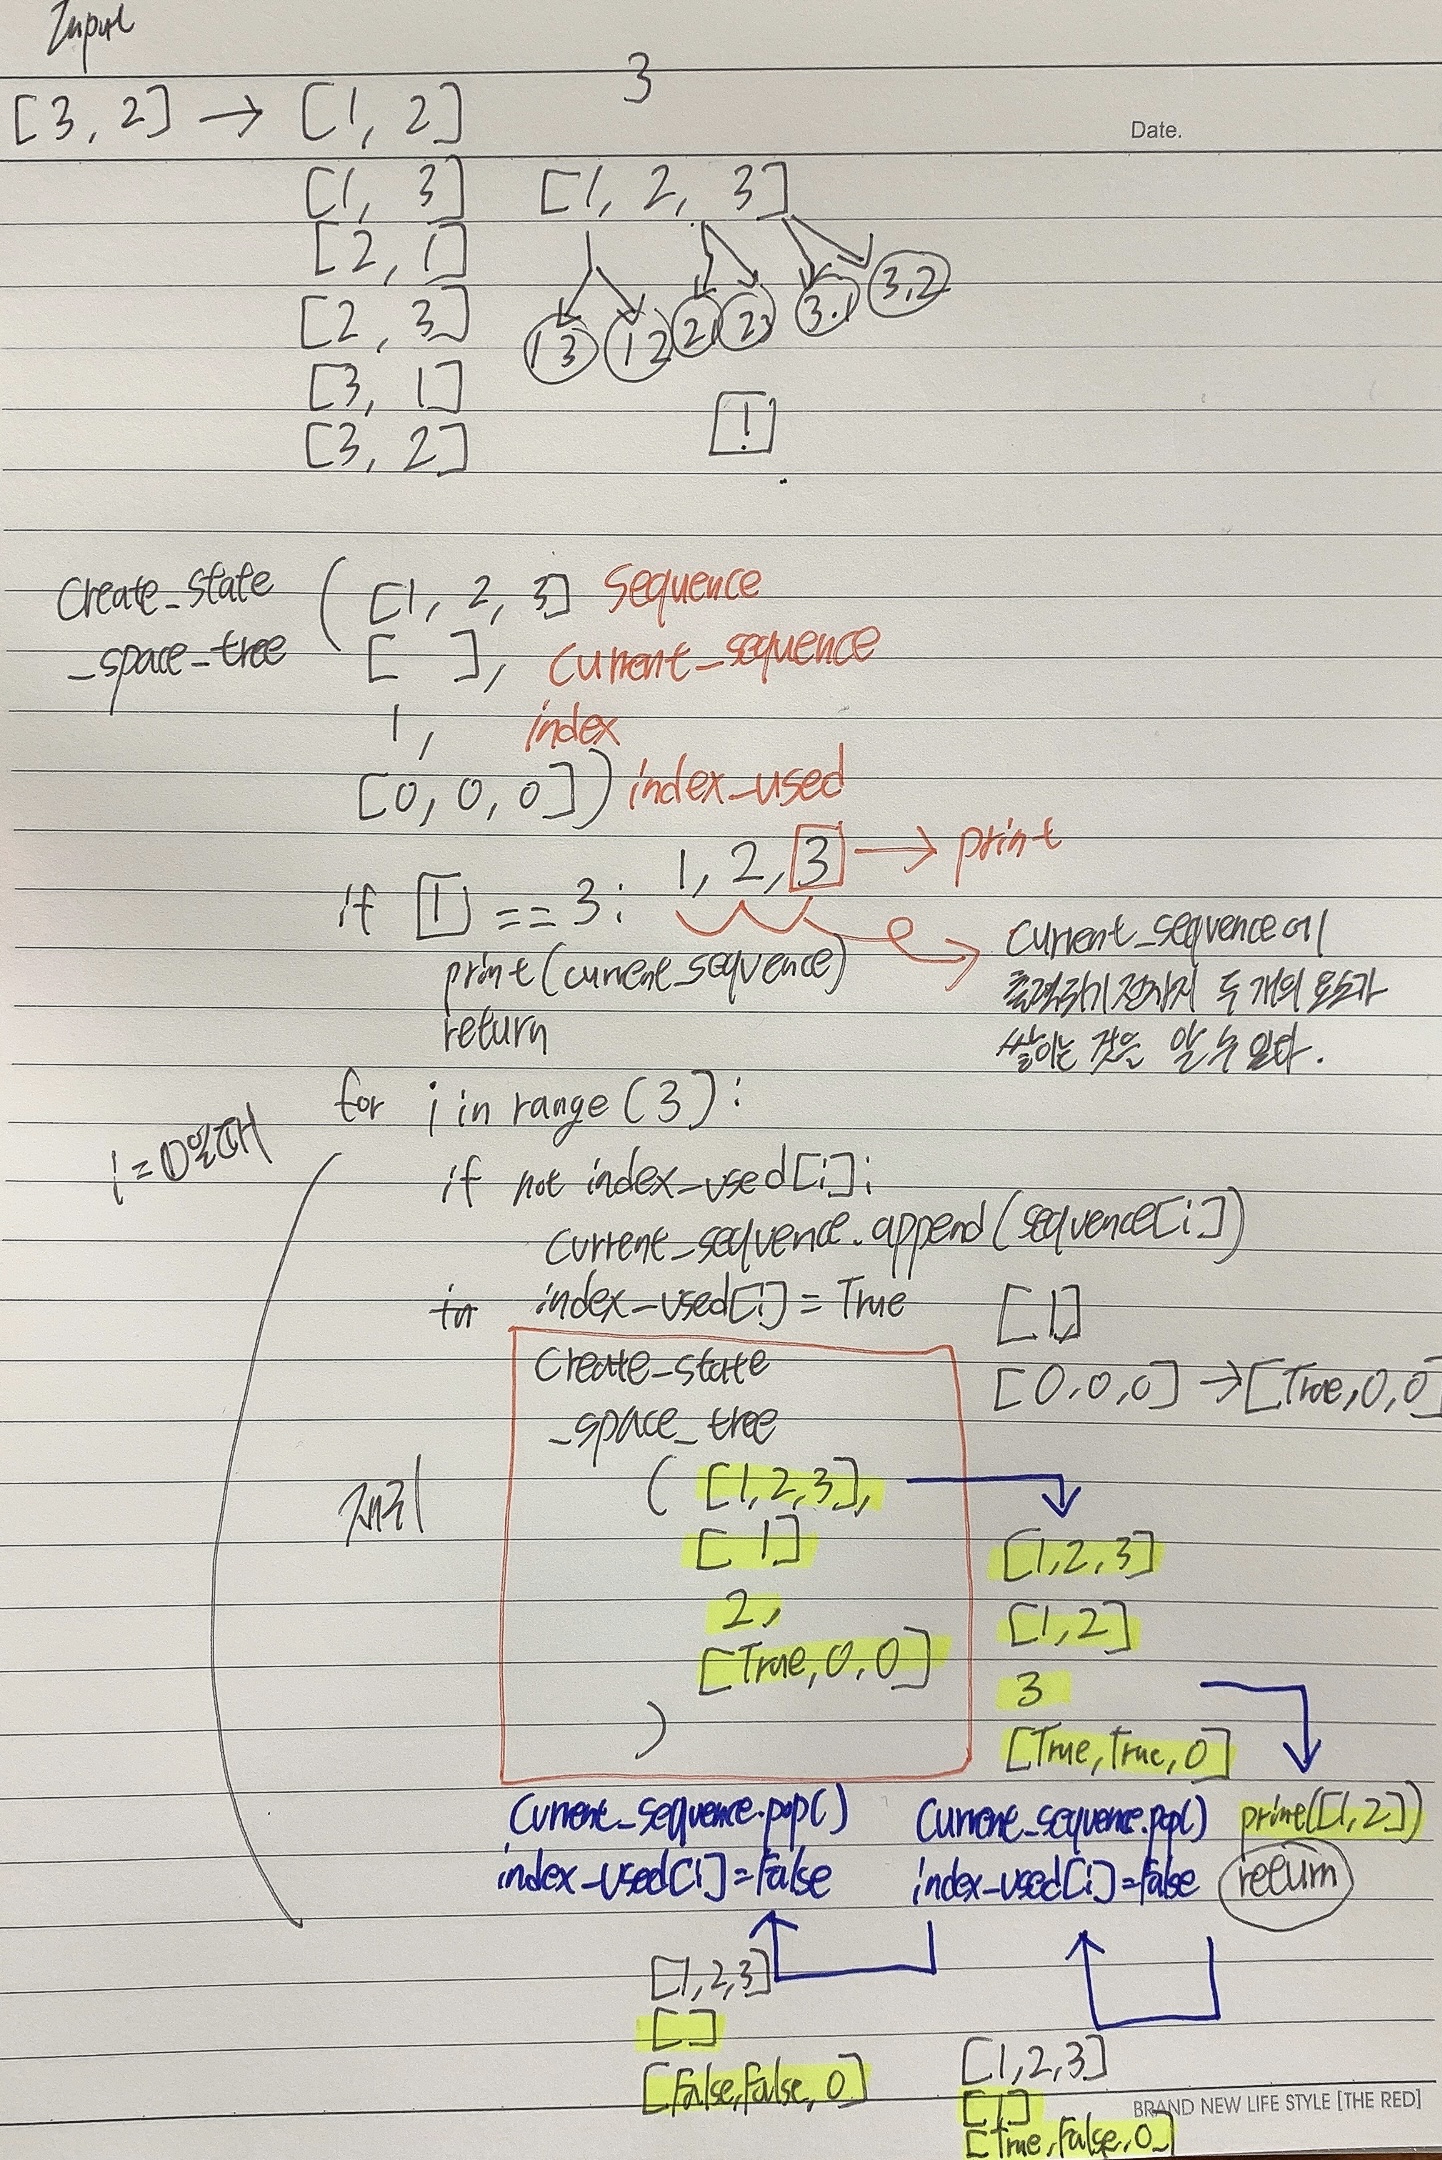 Input
3
[3, 2] → [1, 2]
Date.
[1, 3]
[1, 2, 3]
[2, 1]
[2, 3]
[3, 1]
[3, 2]
1 3
1 2
2 1
2 3
3.1
3,2
!
Create_state
_space_tree
( [1, 2, 3] Sequence
[ ], Current_sequence
1, index
[0, 0, 0] ) index_used
1, 2, 3 → print
if 1 == 3:
print(current_sequence)
return
Current_sequence에
출력하기 전까지 두 개의 요소가
쌓이는 것을 알 수 있다.
for i in range (3):
i=0일때
if not index_used[i]:
Current_sequence.append(sequence[i])
in index_used[i] = True
[1]
[0,0,0] → [True,0,0]
재귀
Create_state
_space_tree
( [1,2,3],
[1]
2,
[True,0,0]
)
[1,2,3]
[1,2]
3
[True,True,0]
Current_sequence.pop()
index_used[i]=False
Current_sequence.pop()
index_used[i]=False
print([1,2])
return
[1,2,3]
[ ]
[False,False,0]
[1,2,3]
[1]
[True,False,0]
BRAND NEW LIFE STYLE [THE RED]